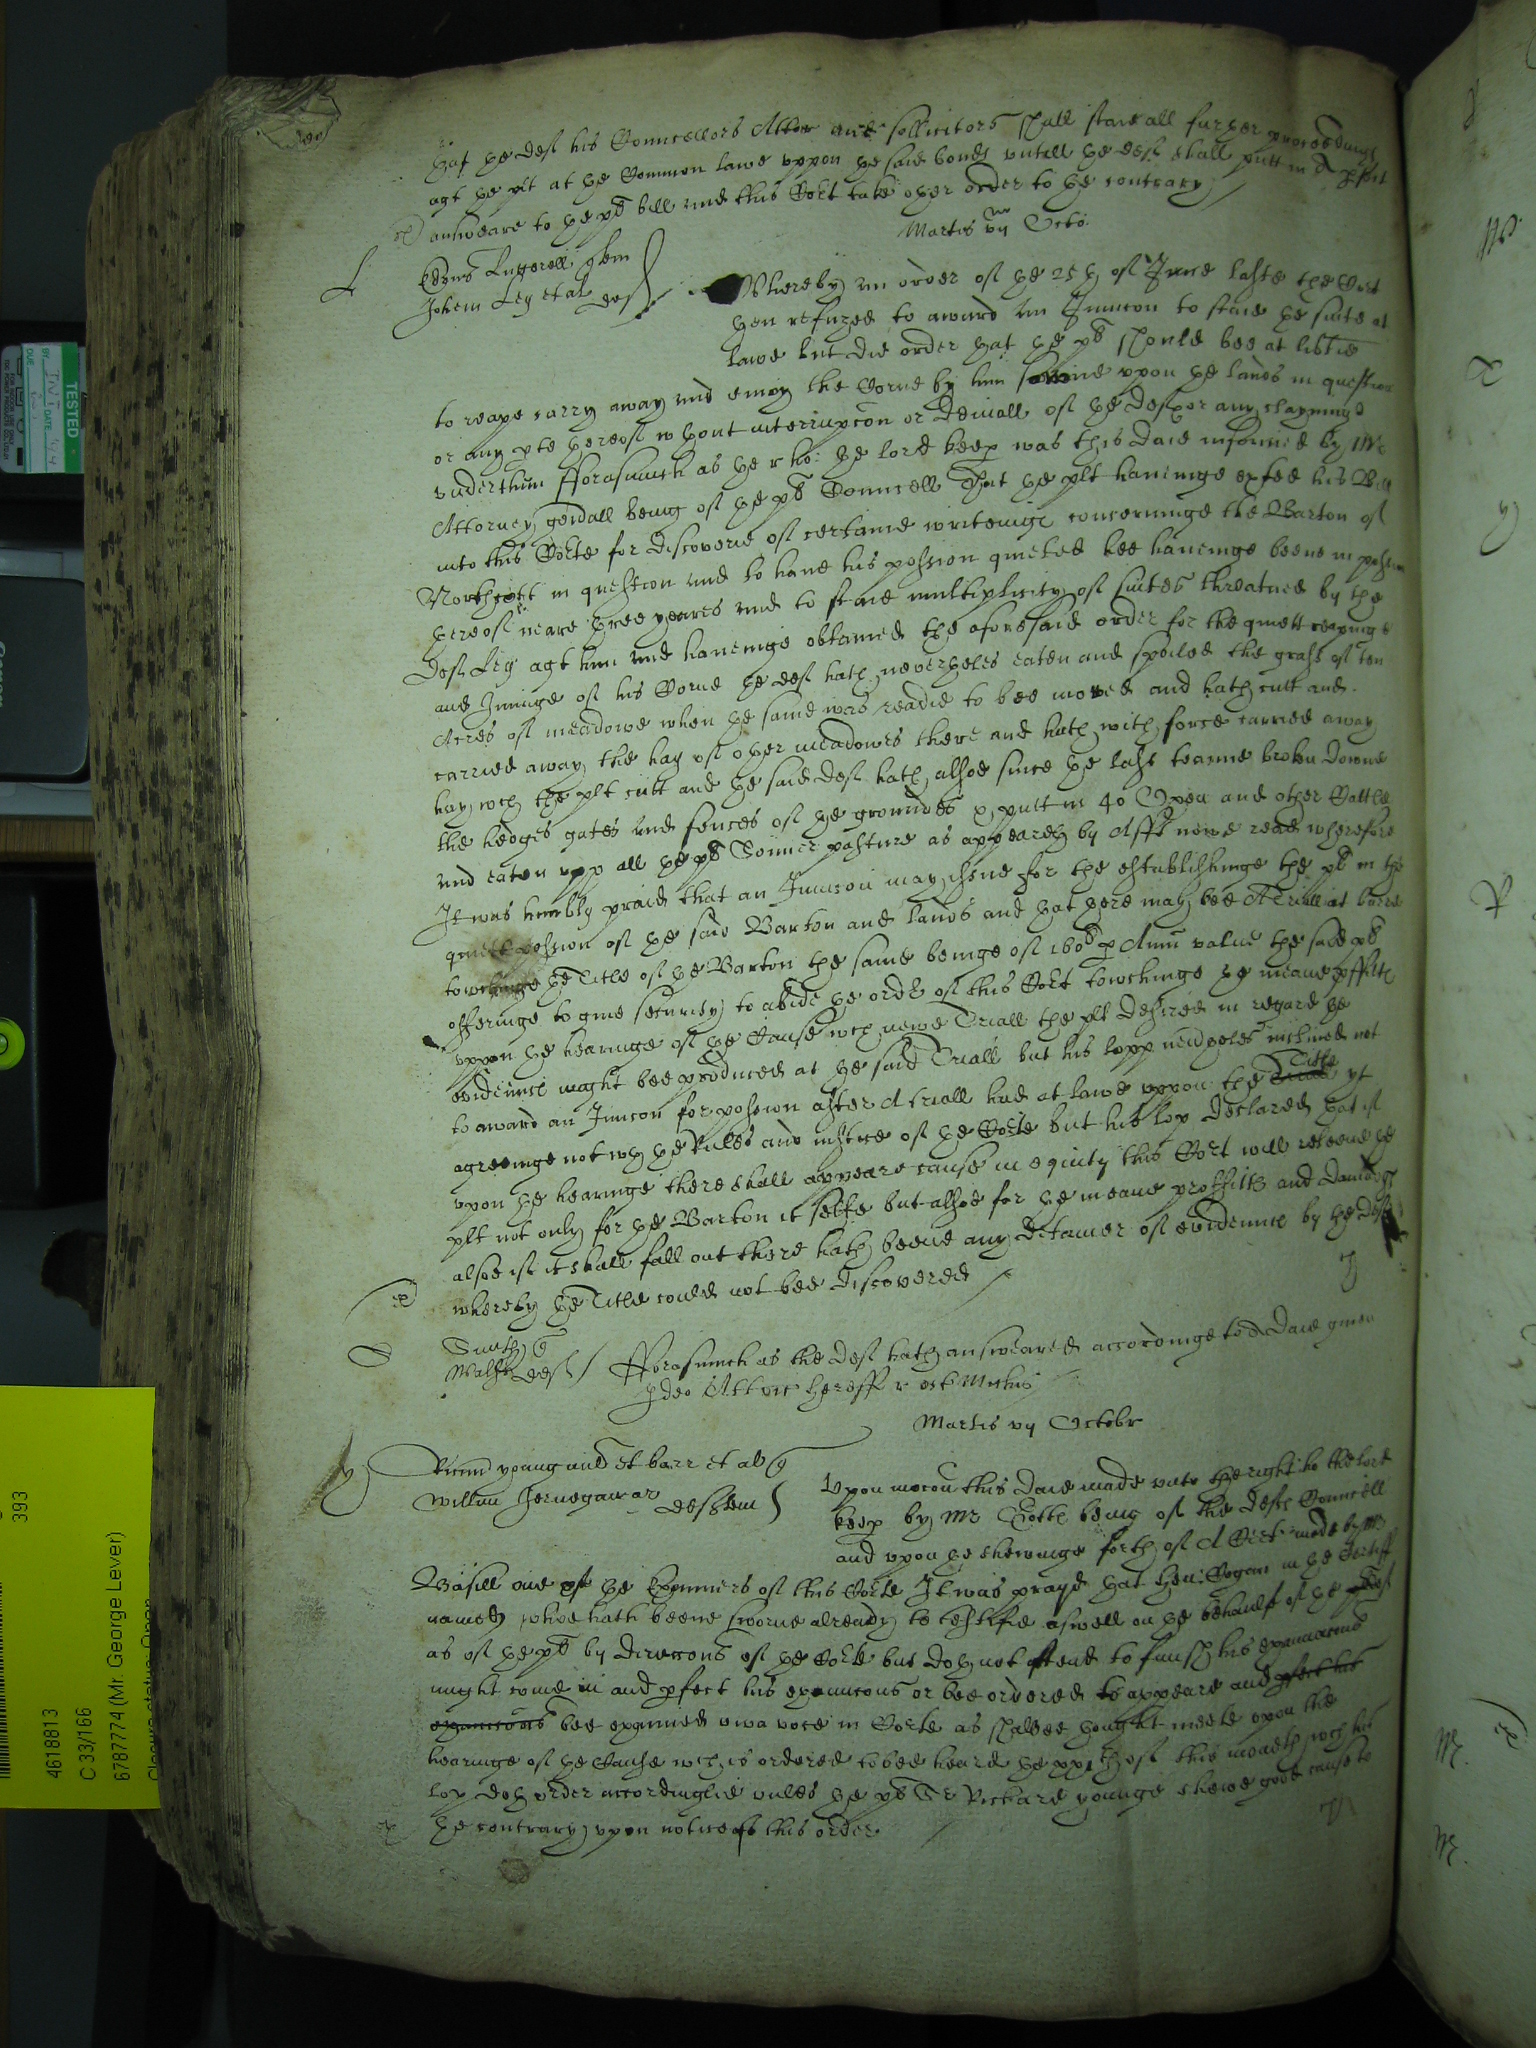 that the deft his Councellors Attor and sollicitors shall staie all further proceedings
agt the plt at the Common lawe uppon the said bonds untill the deft shall putt in a pfect
answeare to the pts bill and this Cort take other order to the contrary
Martis vij Octo:
Lutterell
Johem Ley et al deft
Whereby an order of the 25th of June laste the Cort
then refuzed to award an Iniuncon to staie the suite at
lawe but did order that the pt should bee at libtie
to reape carry away and enioy the Corne by him sowne upon the lands in question
or any pte thereof wthout interrupcon or deniall of the deft or any clayminge
under him Fforasmuch as the r ho: the lord keep was this daie informed by Mr
Attorney genrall being of the pts Councell That the plt haveinge exhed his Bill
into this Corte for discoverie of certaine writeings concerninge the Barton of
Northcott in question and to have his possion quieted hee haveinge beene in possion
thereof neare three yeares and to staie multiplicity of suites threatned by the
deft Ley agt him and haveinge obtained the aforesaid order for the quiett reapinge
and Inninge of his Corne the deft hath neverthelesse eaten and spoiled the grass of ten
Acres of meadowe when the same was readie to bee mowed and hath cutt and
carried away the hay of other meadowes there and hath with force carried away
hay wch the plt cutt and the said deft hath alsoe since the last tearme broken downe
the hedges gates and fences of the groundes & putt in 40 Oxen and other Cattle
and eaten upp all the pts Somer pasture as appeareth by Affid nowe read wherefore
It was humbly praid that an Iniuncon may issue for the establishinge the pt in the
quiett possion of the said Barton and lands and that there may bee A Triall at barre
towchinge the Title of the Barton the same beinge of 160l p Annu value the said pt
offeringe to give security to abide the order of this Cort towchinge the meane pffitts
uppon the hearinge of the Cause wch newe Triall the plt desired in regard the
evidence might bee produced at the said Triall but his lopp neverthelesse inclined not
to award an Iniuncon for possion after A triall had at lawe uppon the Title yt
agreeinge not wth the Rules and iustice of the Corte but his lop declared that if
upon the hearinge there shall appeare cause in equity this Cort will releeve the
plt not only for the Barton it selfe but alsoe for the meane proffitts and damages
alsoe if it shall fall out there hath beene any detainer of evidence by the deft
whereby the Title could not bee discovered
Smith
Walsh deft
Fforasmuch as the deft hath answeared accordinge to A daie given
Ideo Att
Martis vij Octobr
Ricum young milit et barr et al
Willum Jernegan ar deftem
Upon mocon this daie made unto the right ho the lord
keep by Mr being of the defts Councell
and upon the shewinge forth of A Cert made by Mr
Basill one of the Exminers of this Corte It was prayd that Hen: Cogan in the Certiff
named whoe hath beene sworne already to testifie aswell on the behaulf of the deft
as of the pt by direccons of the Corte but doth not attend to finish his exminacons
might come in and pfect his exminacons or bee ordered to appeare and pfect his
exminacons bee exmined viva voce in Corte as shalbee thought meete upon the
hearinge of the Cause wch is ordered to bee heard the xxith of this moneth wch his
lop doth order accordinglie unles the pt Sr Richard younge shewe good cause to
the contrary upon notice of this order
TESTED
DATE
DUE
393
4618813
C 33/166
6787774 (Mr. George Lever)